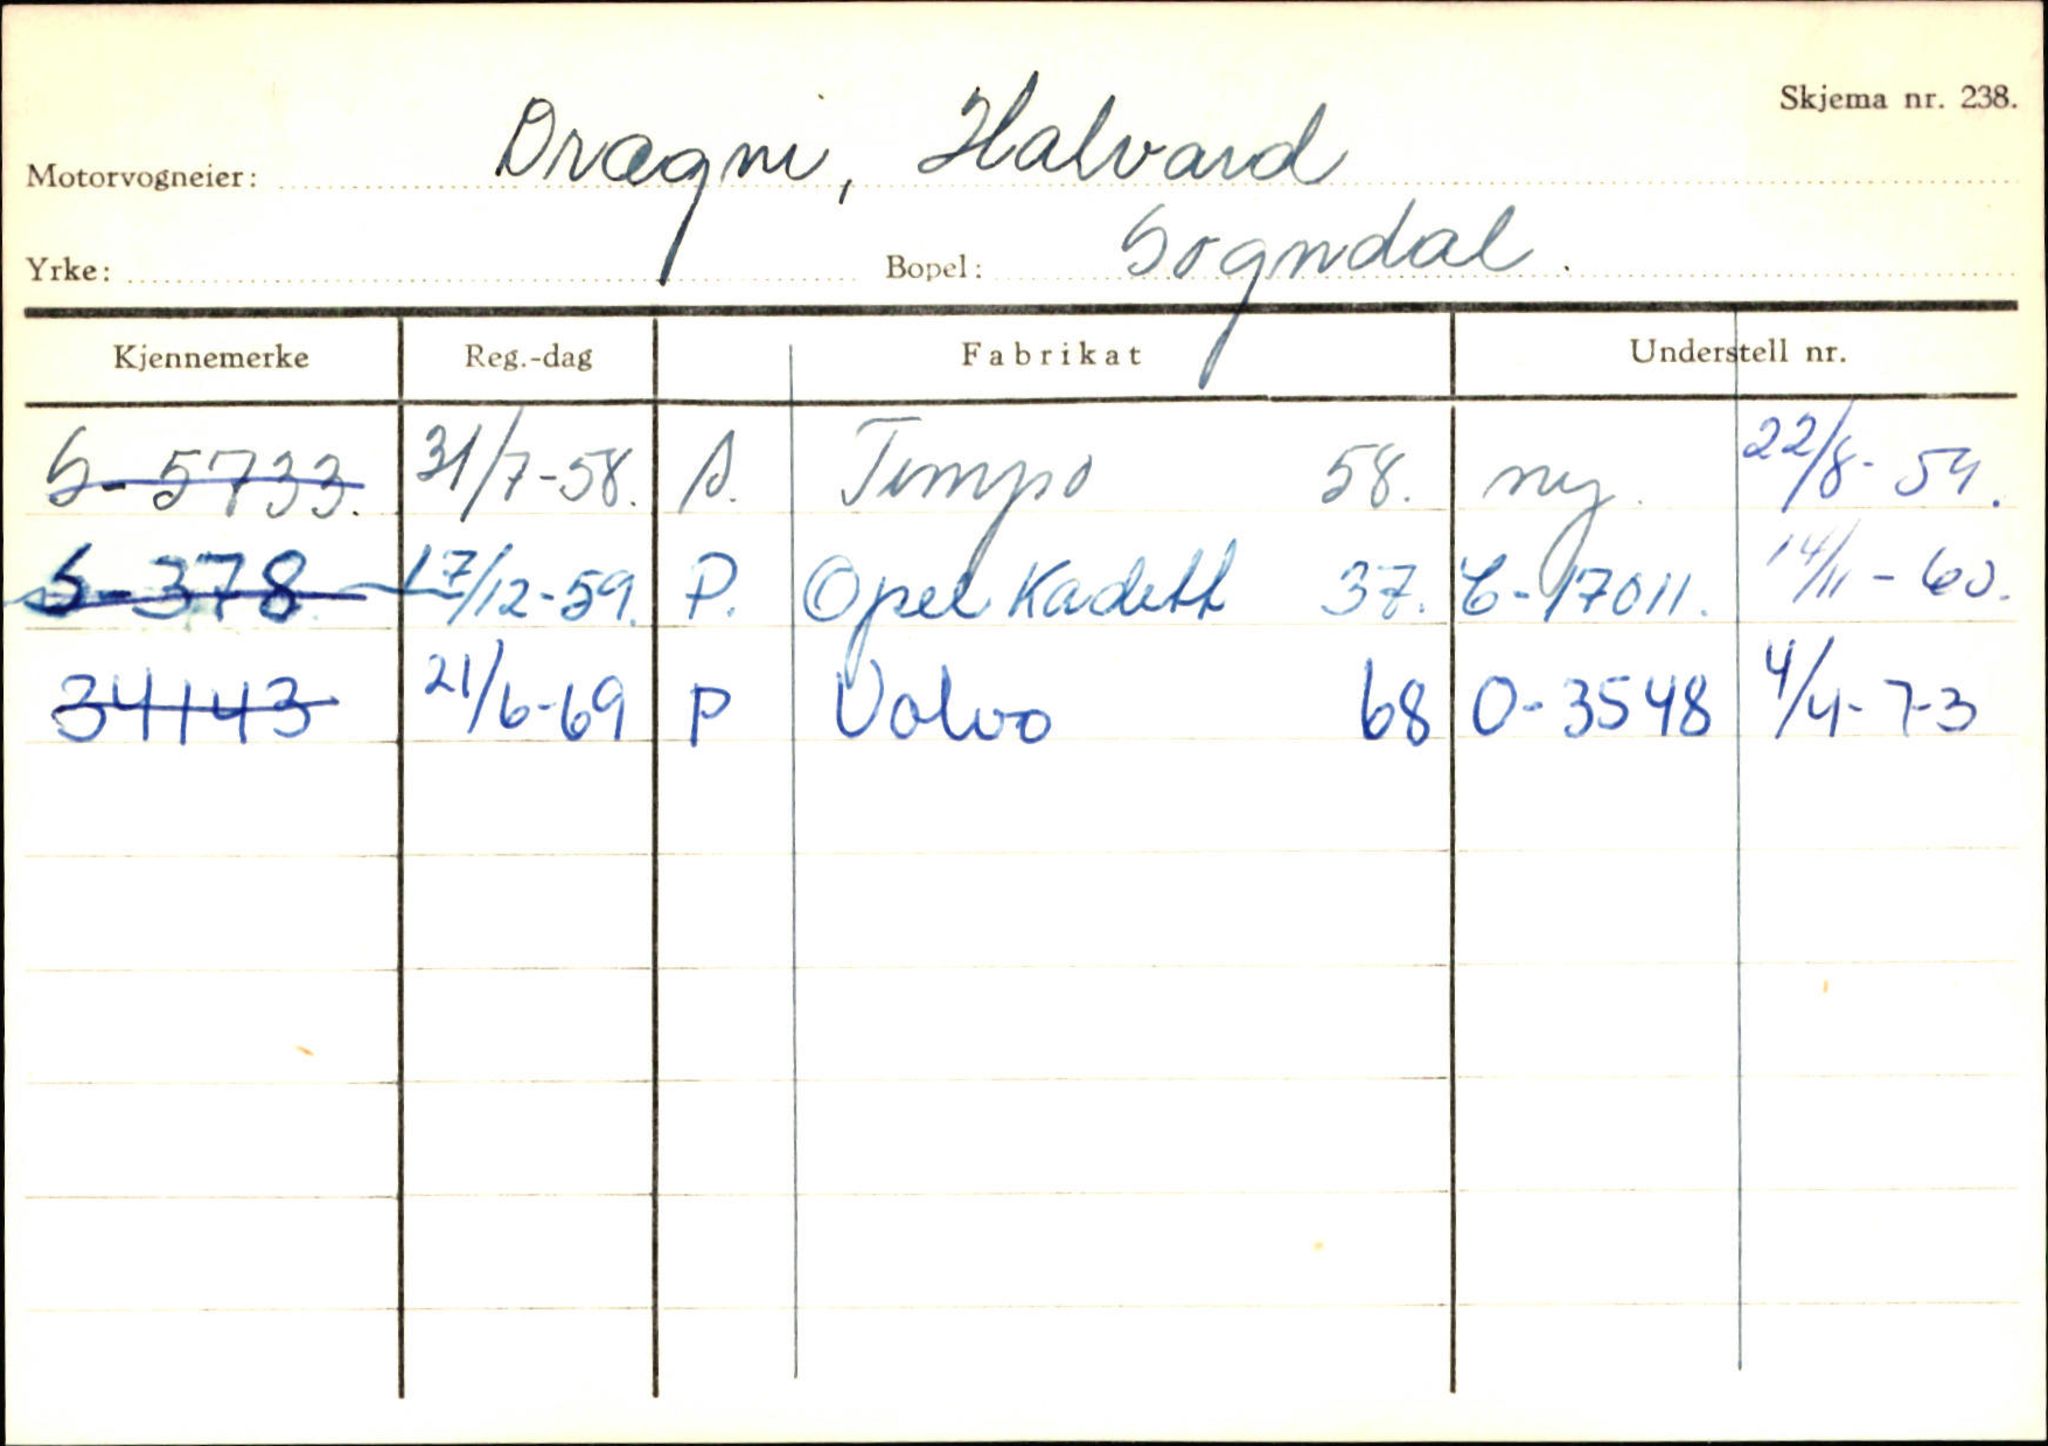 Skjema nr. 238.
Motorvogneier: Drægni, Halvard
Yrke: Bopel: Sogndal.
Kjennemerke Reg.-dag Fabrikat Understell nr.
S-5733. 31/7-58. A. Tempo 58. ny. 22/8-59.
S-378 17/12-59. P. Opel Kadett 37. 6-17011. 14/11-60.
34143 21/6-69 P Volvo 68 0-3548 4/4-73